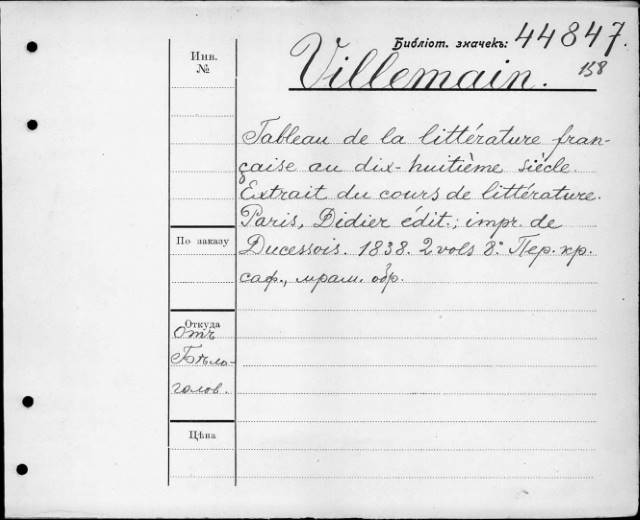 Библіот. значекъ: 44847.
158
Инв.
№
Villemain.
Tableau de la littérature fran-
çaise au dix-huitième siècle.
Extrait du cours de littérature.
Paris, Didier édit.; impr. de
Ducessois. 1838. 2 vols 8º. Пер. кр.
саф., мрам. обр.
По заказу
Откуда
Отъ
Бѣло-
голов.
Цѣна